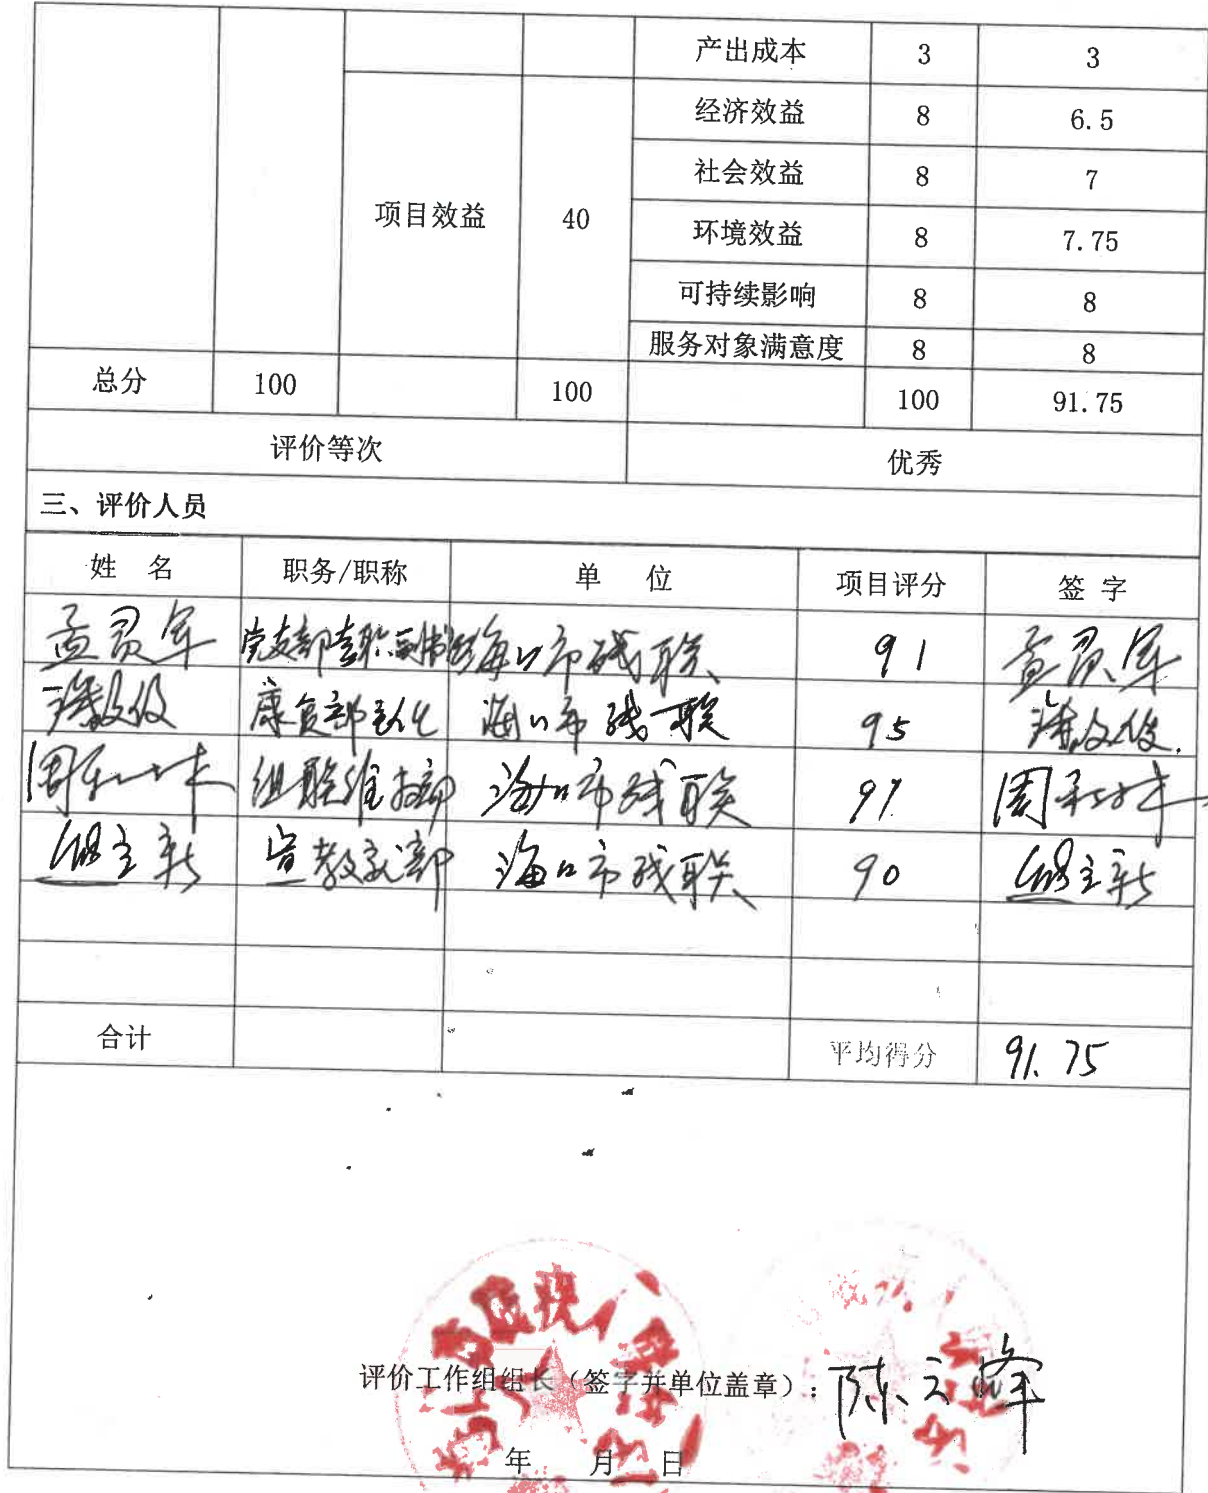 产出成本 3 3
经济效益 8 6.5
社会效益 8 7
项目效益 40 环境效益 8 7.75
可持续影响 8 8
服务对象满意度 8 8
总分 100 100 100 91.75
评价等次 优秀
三、评价人员
姓 名 职务/职称 单 位 项目评分 签 字
孟灵军 党支部专职副书记 海口市残联 91 孟灵军
康复部主任 海口市残联 95
组联维权部 海口市残联 91
宣教就部 海口市残联 90
合计 平均得分 91.75
评价工作组组长（签字并单位盖章）：陈云峰
年 月 日